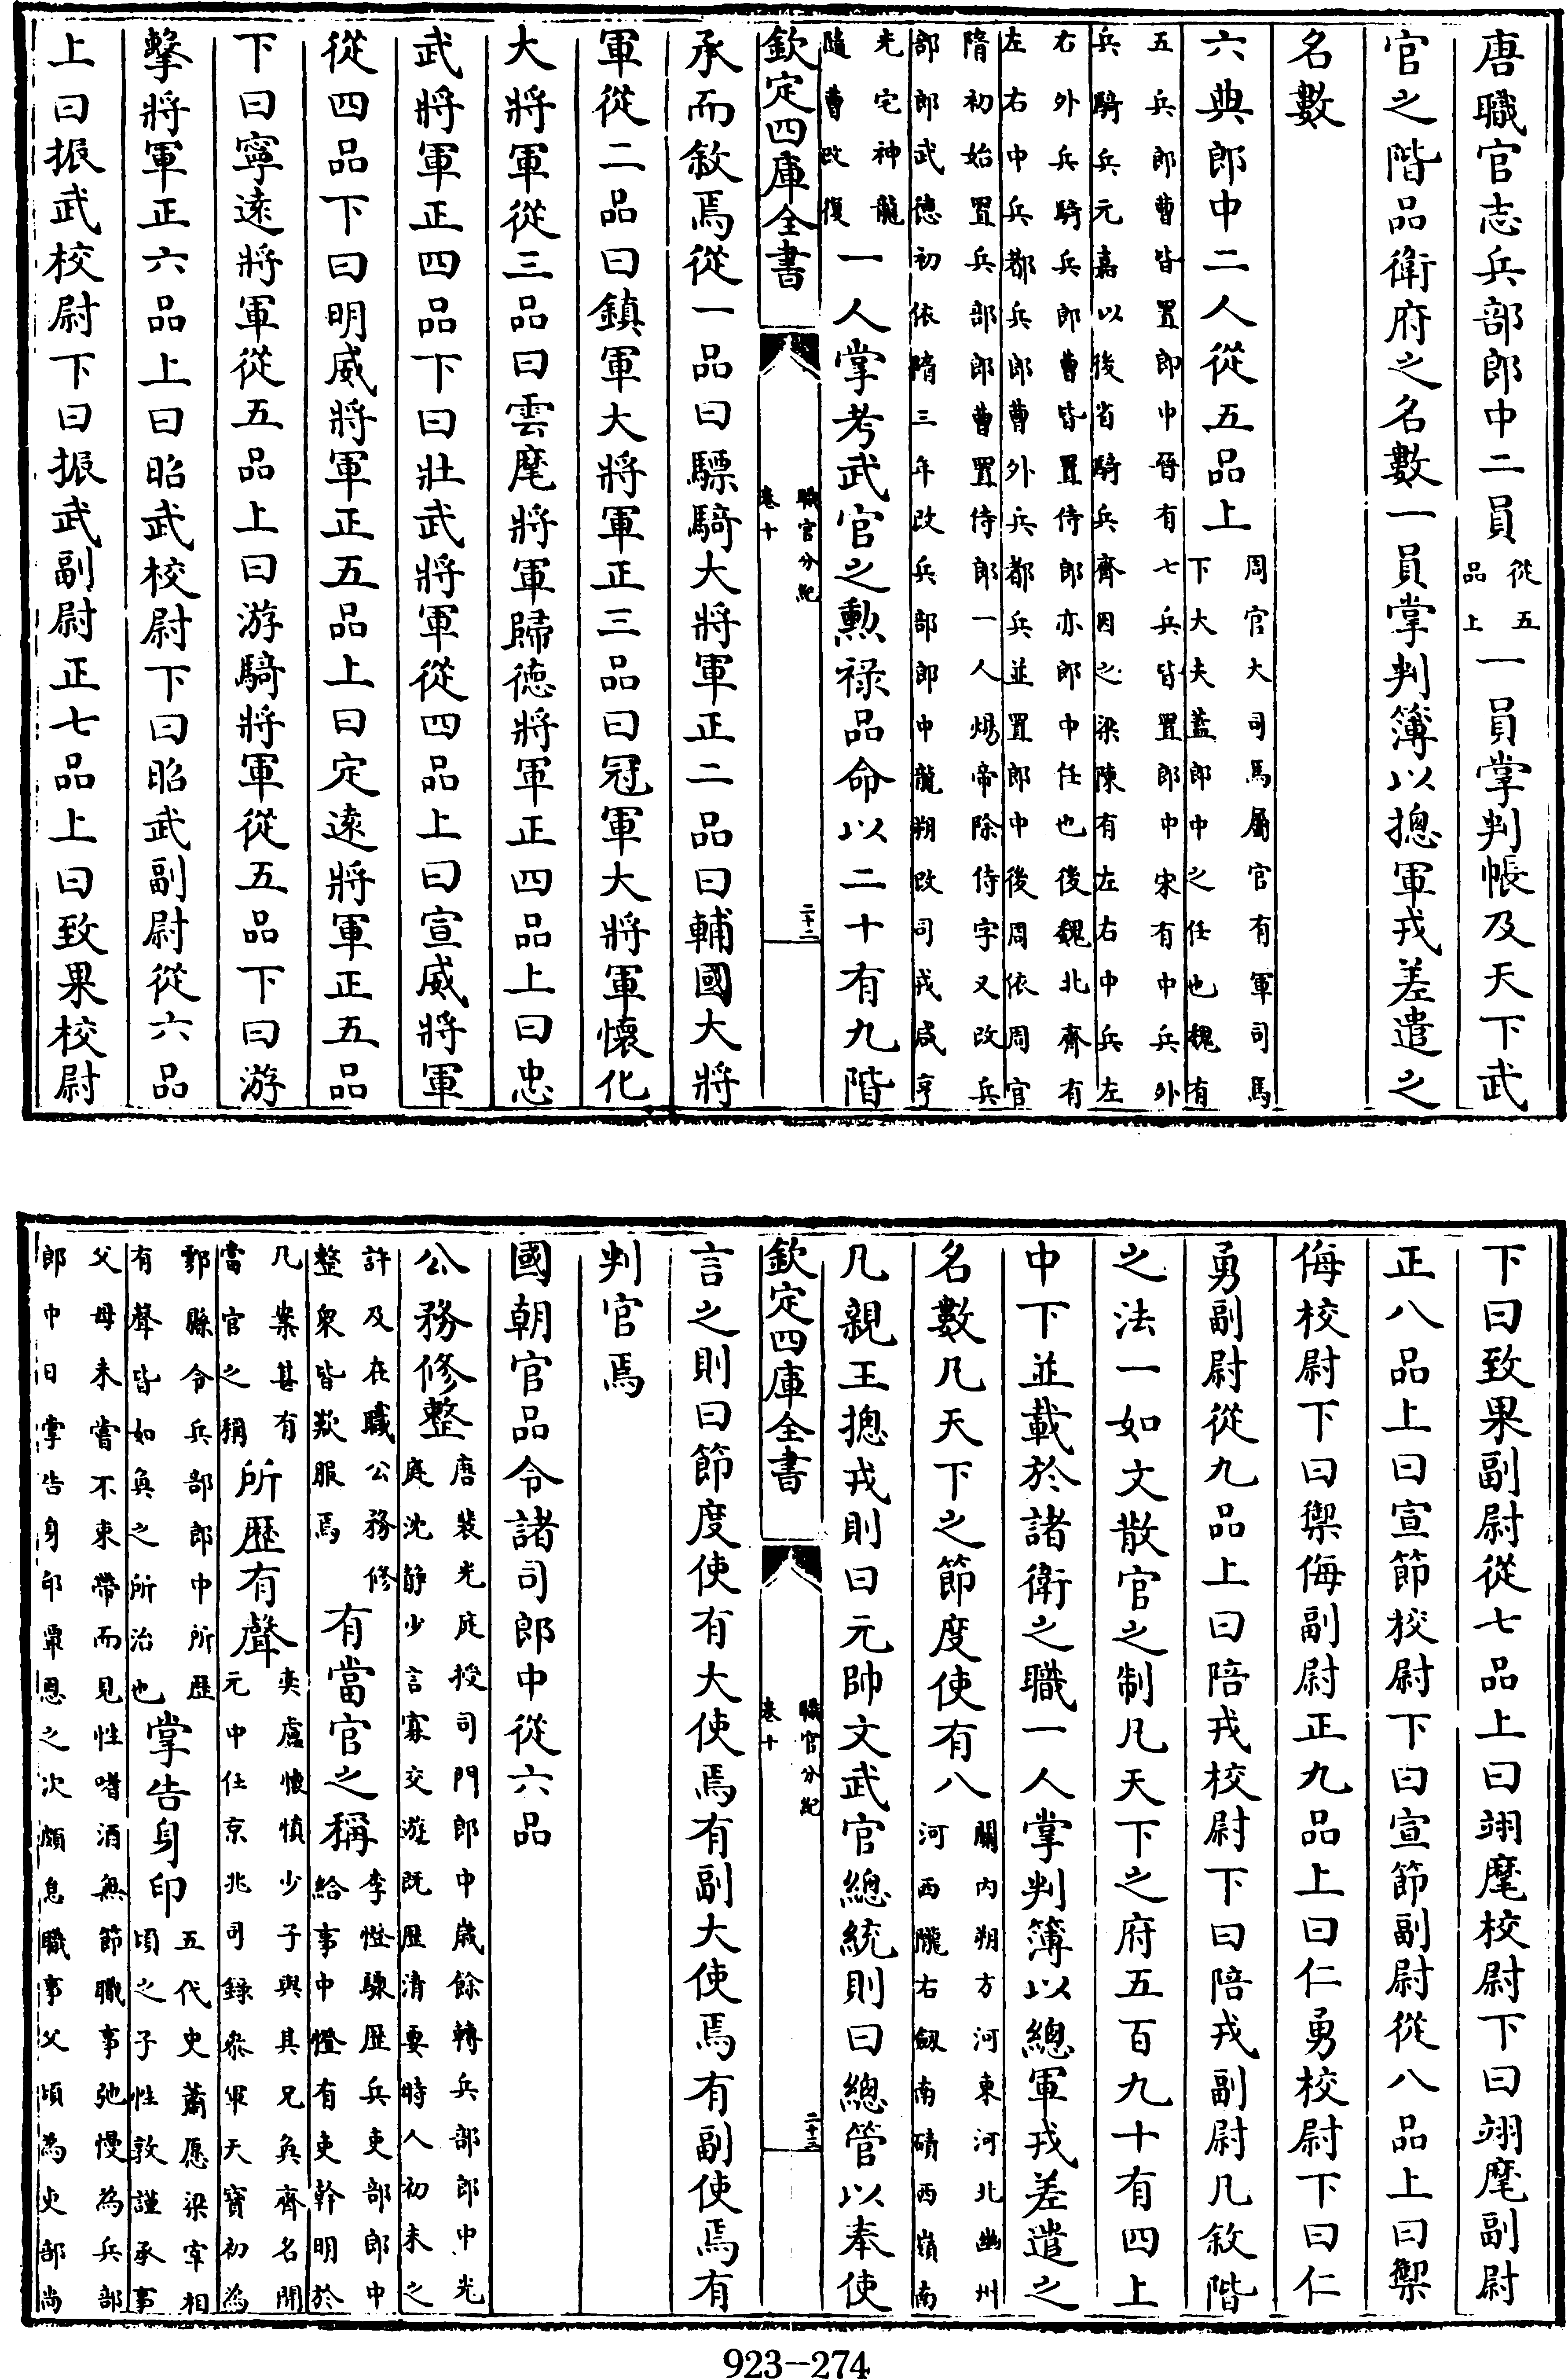 唐職官志兵部郎中二員從五品上一員掌判帳及天下武
官之階品衛府之名數一員掌判簿以摠軍戎差遣之
名數
六典郎中二人從五品上周官大司馬屬官有軍司馬下大夫蓋郎中之任也魏有
五兵郎曹皆置郎中晉有七兵皆置郎中宋有中兵外兵騎兵元嘉以後省騎兵齊因之梁陳有左右中兵左
右外兵騎兵郎曹皆置侍郎亦郎中任也後魏北齊有左右中兵都兵郎曹外兵都兵並置郎中後周依周官
隋初始置兵部郎曹置侍郎一人煬帝除侍字又改兵部郎武德初依隋三年改兵部郎中龍朔改司戎咸亨
光宅神龍隨曹改復一人掌考武官之勲祿品命以二十有九階
欽定四庫全書
職官分紀
卷十
二十二
承而敘焉從一品曰驃騎大將軍正二品曰輔國大將
軍從二品曰鎮軍大將軍正三品曰冠軍大將軍懷化
大將軍從三品曰雲麾將軍歸德將軍正四品上曰忠
武將軍正四品下曰壯武將軍從四品上曰宣威將軍
從四品下曰明威將軍正五品上曰定遠將軍正五品
下曰寧遠將軍從五品上曰游騎將軍從五品下曰游
擊將軍正六品上曰昭武校尉下曰昭武副尉從六品
上曰振武校尉下曰振武副尉正七品上曰致果校尉
下曰致果副尉從七品上曰翊麾校尉下曰翊麾副尉
正八品上曰宣節校尉下曰宣節副尉從八品上曰禦
侮校尉下曰禦侮副尉正九品上曰仁勇校尉下曰仁
勇副尉從九品上曰陪戎校尉下曰陪戎副尉凡敘階
之法一如文散官之制凡天下之府五百九十有四上
中下並載於諸衛之職一人掌判簿以總軍戎差遣之
名數凡天下之節度使有八關內朔方河東河北幽州河西隴右劔南磧西嶺南
凡親王摠戎則曰元帥文武官總統則曰總管以奉使
欽定四庫全書
職官分紀
卷十
二十三
言之則曰節度使有大使焉有副大使焉有副使焉有
判官焉
國朝官品令諸司郎中從六品
公務修整唐裴光庭授司門郎中歲餘轉兵部郎中光庭沈靜少言寡交游既歷清要時人初未之
許及在職公務修整衆皆歎服焉有當官之稱李憕驟歷兵吏部郎中給事中憕有吏幹明於
几案甚有當官之稱所歷有聲奕盧懷慎少子與其兄奐齊名開元中任京兆司錄叅軍天寶初為
鄠縣令兵部郎中所歷有聲皆如奐之所治也掌告身印五代史蕭愿梁宰相頃之子性敦謹承事
父母未嘗不束帶而見性嗜酒無節職事弛慢為兵部郎中日掌告身印覃恩之次頗怠職事父頃為吏部尚
923—274